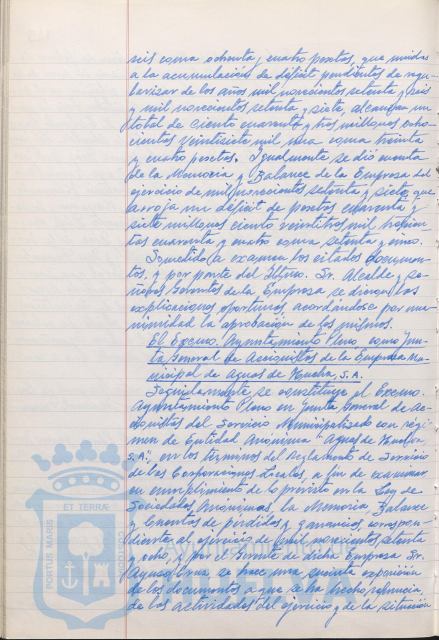 seis coma ochenta y cuatro pesetas, que unidas
a la acumulación de déficit pendientes de regu-
larizar de los años mil novecientos setenta y seis
y mil novecientos setenta y siete, alcanzan un
total de ciento cuarenta y tres millones ocho-
cientos veintisiete mil una coma treinta
y cuatro pesetas. Igualmente se dio cuenta
de la Memoria y Balance de la Empresa del
ejercicio de mil novecientos setenta y siete que
arroja un déficit de pesetas cuarenta y
siete millones ciento veintitres mil trescien-
tas cuarenta y cuatro coma setenta y uno.
Sometido a examen los citados documen-
tos, y por parte del Iltmo. Sr. Alcalde y se-
ñores Gerentes de la Empresa se dieron las
explicaciones oportunas acordándose por una-
nimidad la aprobación de los mismos.
El Excmo. Ayuntamiento Pleno, como Jun-
ta General de Accionistas de la Empresa Mu-
nicipal de Aguas de Huelva, S.A.
Seguidamente se constituye el Excmo.
Ayuntamiento Pleno en Junta General de Ac-
cionistas del Servicio Municipalizado con régi-
men de Entidad Anónima "Aguas de Huelva,
S.A.", en los términos del Reglamento de Servicios
de las Corporaciones Locales, a fin de examinar
en cumplimiento de lo previsto en la Ley de
Sociedades Anónimas, la Memoria, Balance
y Cuentas de pérdidas y ganancias, correspon-
diente al ejercicio de mil novecientos setenta
y ocho, y por el Gerente de dicha Empresa Sr.
se hace una sucinta exposición
de los documentos a que se ha hecho referencia
de las actividades del ejercicio y de la situación
ET TERRÆ
PORTUS MARIS